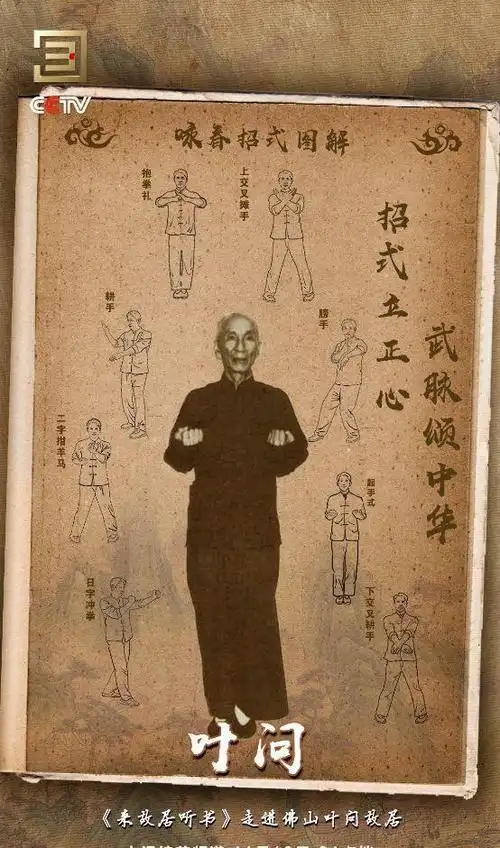 CCTV
咏春招式图解
抱拳礼
上交叉摊手
招式立正心
武脉颂中华
耕手
膀手
二字拑羊马
起手式
日字冲拳
下交叉耕手
叶问
《来故居听书》走进佛山叶问故居